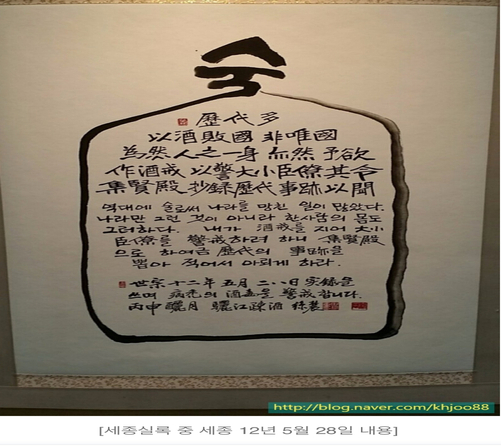 술
歷代多
以酒敗國 非唯國
爲然人之一身 亦然 予欲
作酒戒 以警大小臣僚 其令
集賢殿 抄錄歷代事跡以聞
역대에 술로써 나라를 망친 일이 많았다.
나라만 그런 것이 아니라 한사람의 몸도
그러하다. 내가 酒戒를 지어 大小
臣僚를 警戒하려 하니 集賢殿
으로 하여금 歷代의 事跡을
뽑아 적어서 아뢰게 하라.
世宗 十二年 五月 二八日 実錄을
쓰며 病老의 酒 警戒합니다.
丙申 月 驪江 酒
http://blog.naver.com/khjoo88
[세종실록 중 세종 12년 5월 28일 내용]